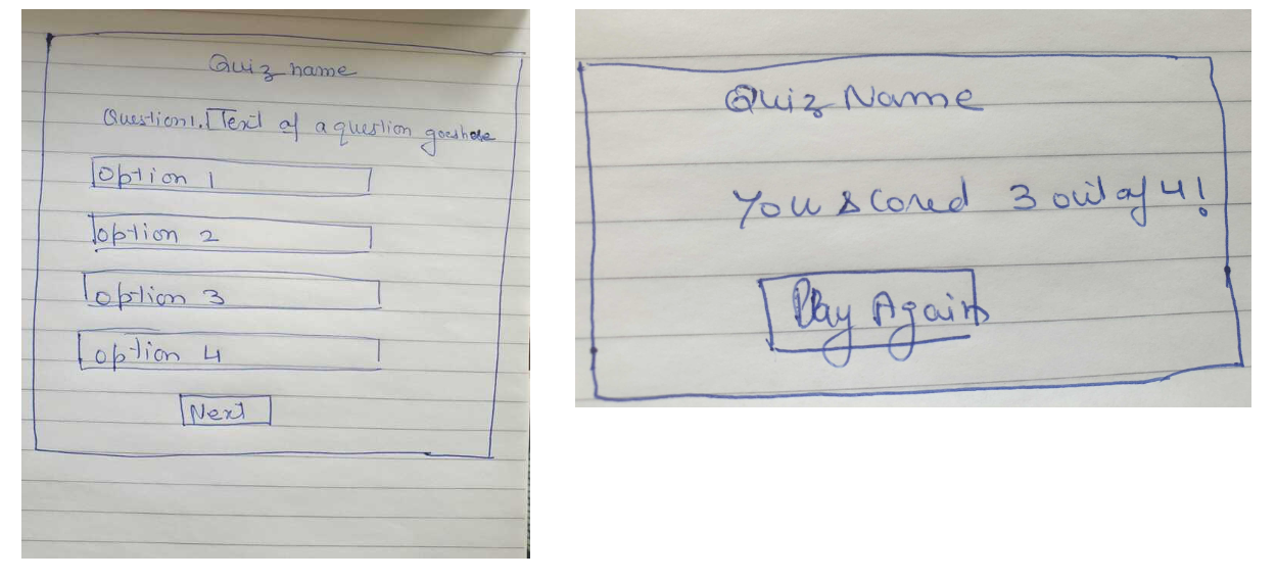 Quiz name
Question1. [Text of a question goes here
Option 1
Option 2
Option 3
Option 4
Next
Quiz Name
You scored 3 out of 4!
Play Again